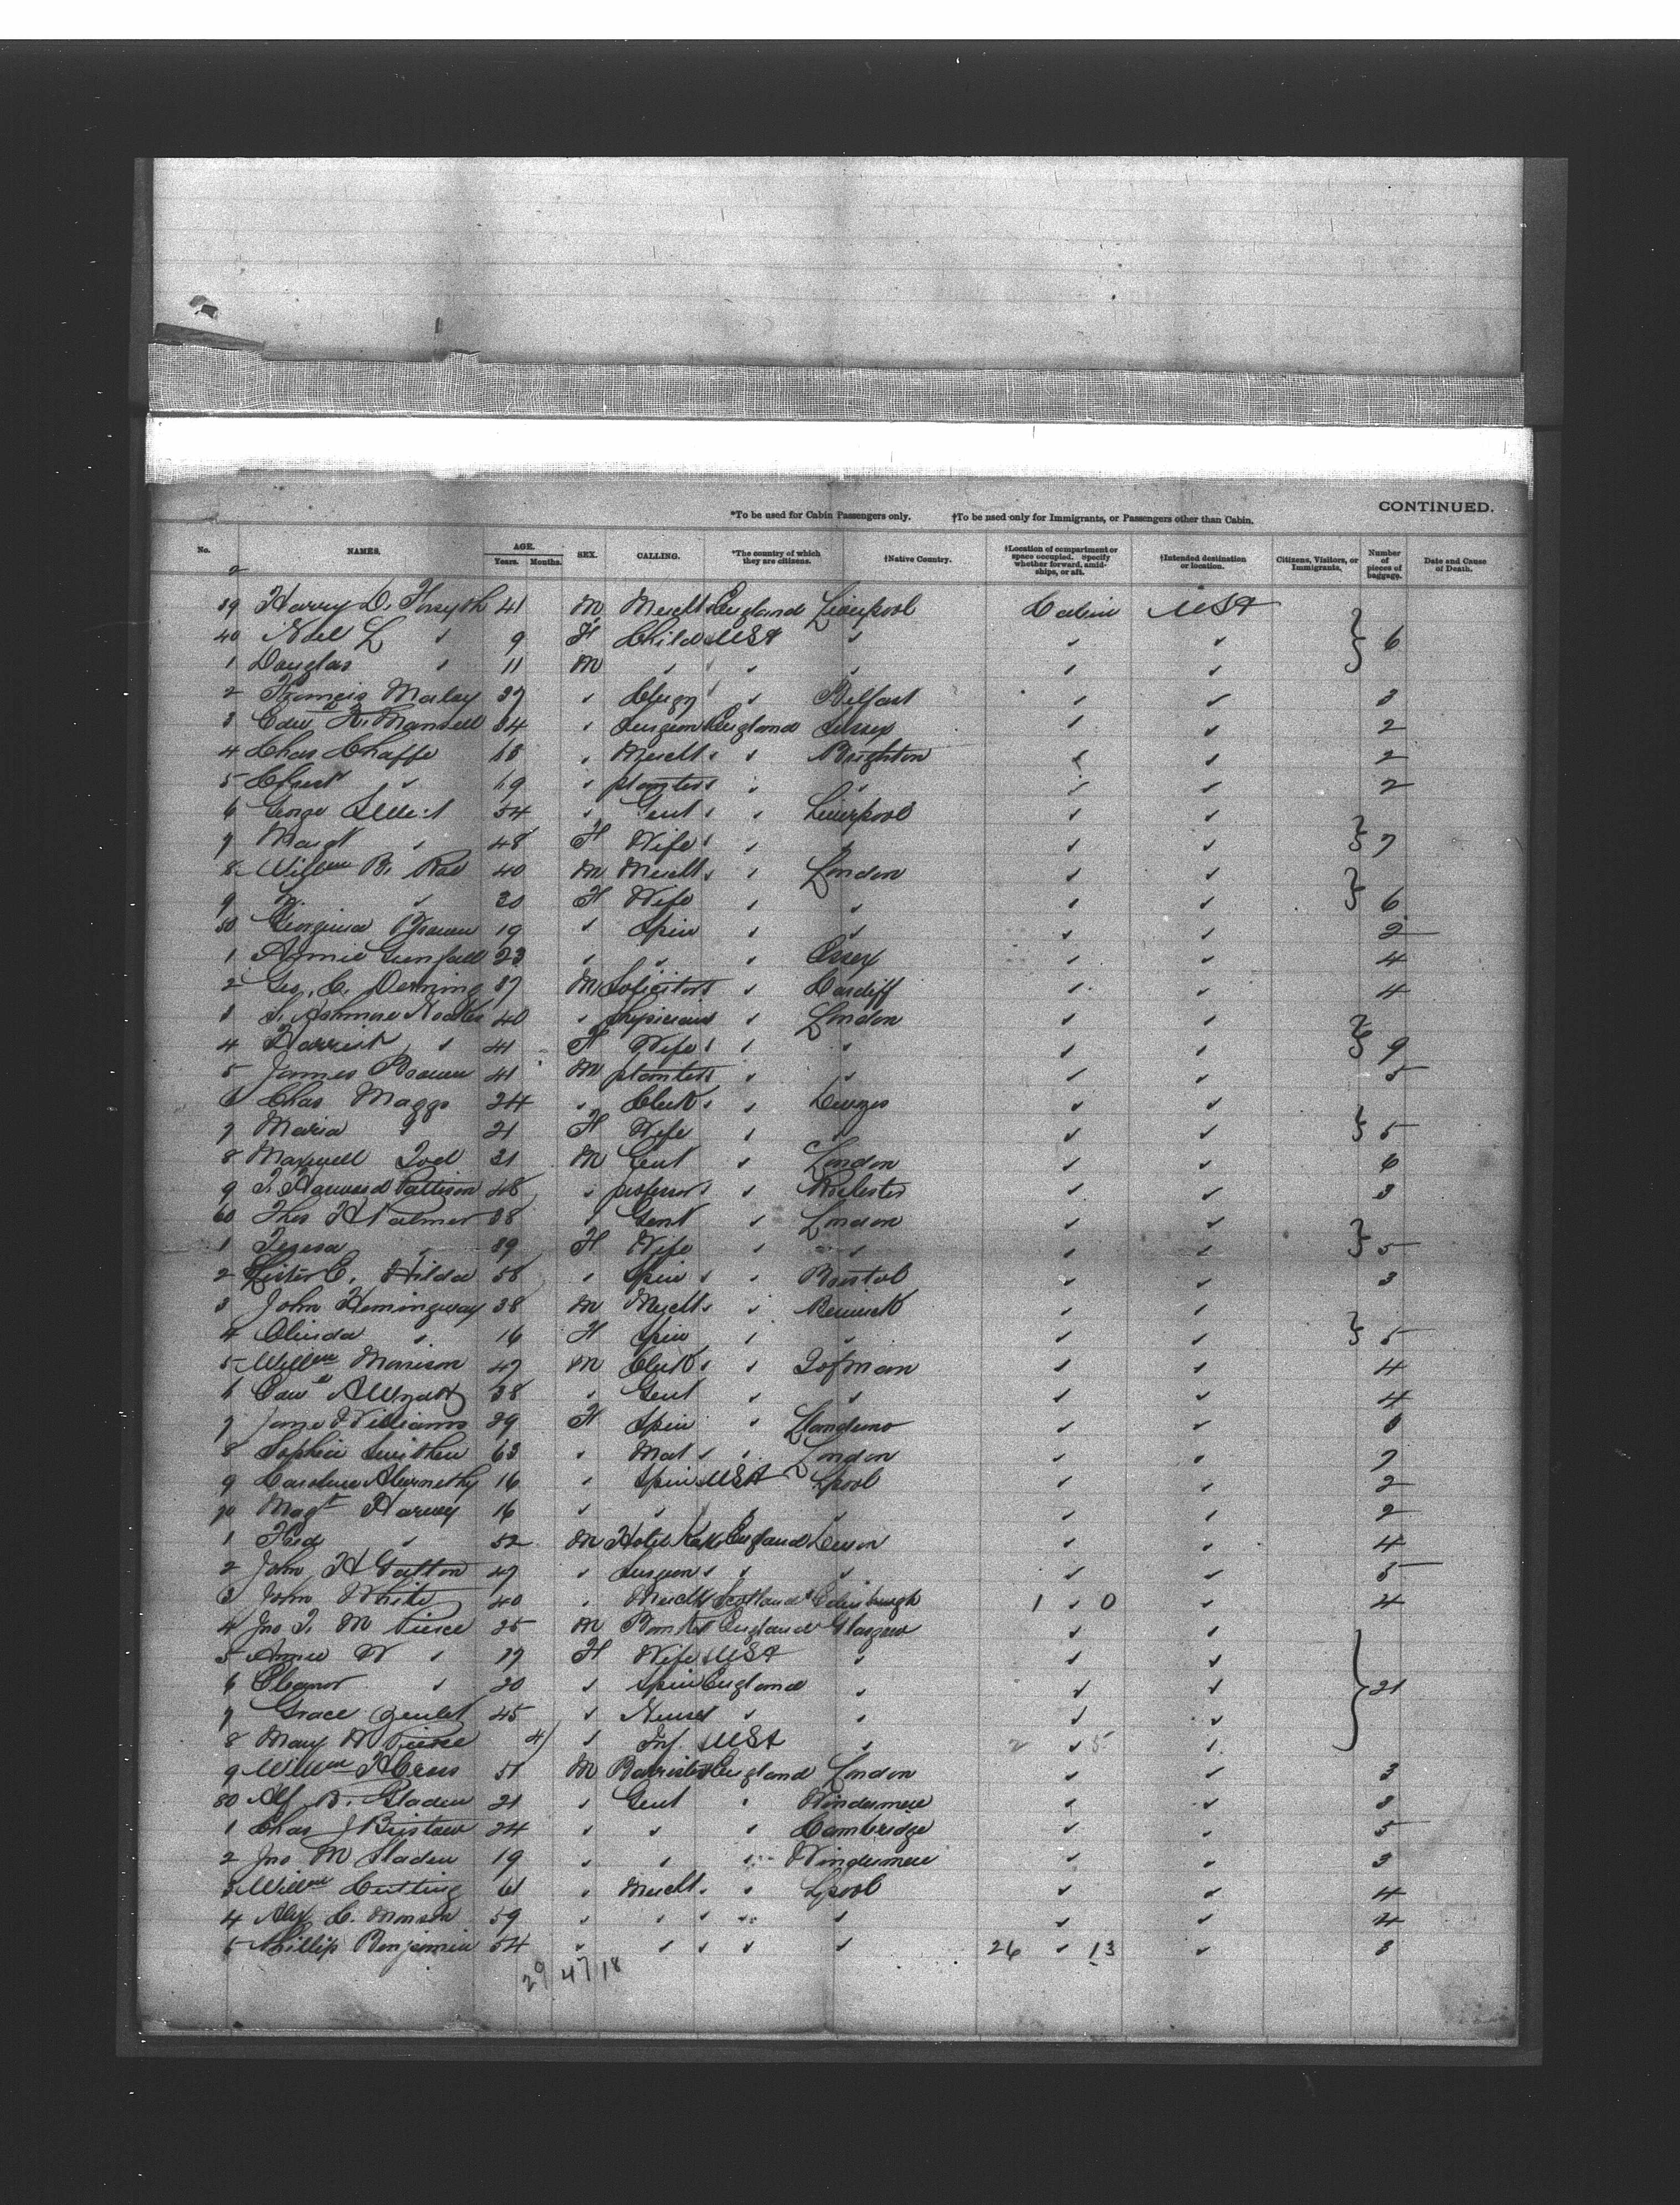 CONTINUED.
*To be used for Cabin Passengers only. †To be used only for Immigrants, or Passengers other than Cabin.
No. NAMES. AGE. Years. Months. SEX. CALLING. *The country of which they are citizens. †Native Country. †Location of compartment or space occupied. Specify whether forward, amidships, or aft. †Intended destination or location. Citizens, Visitors, or Immigrants. Number of pieces of baggage. Date and Cause of Death.
39 Harry D. Forsyth 41 M Mercht England Liverpool Cabin USA
40 Noel L " 9 F Child USA " " " 6
1 Douglas " 11 M " " " " "
2 Francis Marley 37 " Clergy " Belfast " " 3
3 Edw R. Mansell 34 " Surgeon England Sussex " " 2
4 Chas Chaffe 68 " Mercht " Brighton " " 2
5 " 19 " planter " " " " 2
6 George 54 " Gent " Liverpool " "
7 Margt " 48 F Wife " " " " 7
8 Willm B. Rae 40 M Mercht " London " "
9 " 30 F Wife " " " " 6
50 Georgina Brown 19 " Spin " " " " 2
1 Annie Grenfell 23 " " " Essex " " 4
2 Geo. C. Deming 37 M Solicitor " Cardiff " " 4
3 S. Ashmore 40 " Physician " London " "
4 Harriet " 41 F Wife " " " " 9
5 James Brown 41 M planter " " " " 5
6 Chas Maggs 24 " Clerk " Devizes " "
7 Maria " 21 F Wife " " " " 5
8 Maxwell Tod 31 M Gent " London " " 6
9 T. Harwood Pattison 48 " professor " Rochester " " 3
60 Thos H Palmer 38 " Gent " London " "
1 Teresa " 39 F Wife " " " " 5
2 Sister C. Hilda 58 " Spin " Bristol " " 3
3 John Hemingway 38 M Mercht " Berwick " "
4 Clinda " 16 F Spin " " " " 5
5 Willm Morrison 47 M Clerk " I of man " " 4
6 38 " Gent " " " " 4
7 Jane Williams 29 F Spin " Llanduno " "
8 Sophia Smithen 63 " Mat " London " " 7
9 Caroline Abernethy 16 " Spin USA Lpool " " 2
70 Magt Harvey 16 " " " " " " 2
1 Fred " 52 M Hotel Kepr England Devon " " 4
2 John H Galton 47 " Surgeon " " " " 5
3 John White 40 " Mercht Scotland Edinburgh 1 " 0 " 4
4 Jno T. M Pierce 25 M Banker England Glasgow " "
5 Annie W " 27 F Wife USA " " "
6 Eleanor " 20 " Spin England " " " 21
7 Grace 45 " Nurse " " " "
8 Mary W Pierce 4/ " Inf USA " 2 " 5 "
9 Willm H Cross 51 M Barrister England London " " 3
80 Alf B. Sladen 21 " Gent " Windermere " " 3
1 Chas J Bristow 24 " " " Cambridge " " 5
2 Jno M Sladen 19 " " " Windermere " " 3
3 Willm Cutting 61 " Mercht " Lpool " " 4
4 Alex C. 59 " " " " " " 4
5 Phillip Benjamin 54 " " " " 26 " 13 " 3
29 47 18